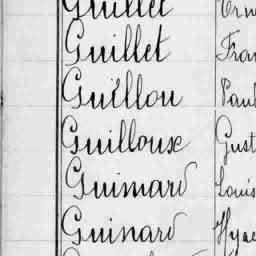 Guillet
Guillet Fran
Guillou Paul
Guilloux Gust
Guimard Louis
Guinard Hya